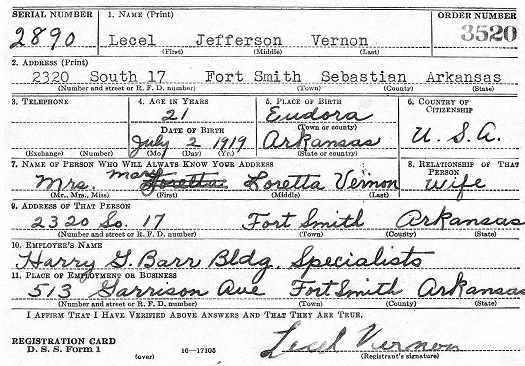 SERIAL NUMBER 1. NAME (Print) ORDER NUMBER
2890 Lecel Jefferson Vernon 3520
(First) (Middle) (Last)
2. ADDRESS (Print)
2320 South 17 Fort Smith Sebastian Arkansas
(Number and street or R. F. D. number) (Town) (County) (State)
3. TELEPHONE 4. AGE IN YEARS 5. PLACE OF BIRTH 6. COUNTRY OF CITIZENSHIP
21 Eudora
DATE OF BIRTH (Town or county)
July 2 1919 Arkansas U.S.A.
(Exchange) (Number) (Mo.) (Day) (Yr.) (State or country)
7. NAME OF PERSON WHO WILL ALWAYS KNOW YOUR ADDRESS 8. RELATIONSHIP OF THAT PERSON
Mrs. Mary Loretta Loretta Vernon wife
(Mr., Mrs., Miss) (First) (Middle) (Last)
9. ADDRESS OF THAT PERSON
2320 So. 17 Fort Smith Arkansas
(Number and street or R. F. D. number) (Town) (County) (State)
10. EMPLOYER'S NAME
Harry G. Barr Bldg. Specialists
11. PLACE OF EMPLOYMENT OR BUSINESS
513 Garrison Ave Fort Smith Arkansas
(Number and street or R. F. D. number) (Town) (County) (State)
I AFFIRM THAT I HAVE VERIFIED ABOVE ANSWERS AND THAT THEY ARE TRUE.
REGISTRATION CARD
D. S. S. Form 1 (over) 16—17105 Lecel Vernon
(Registrant's signature)